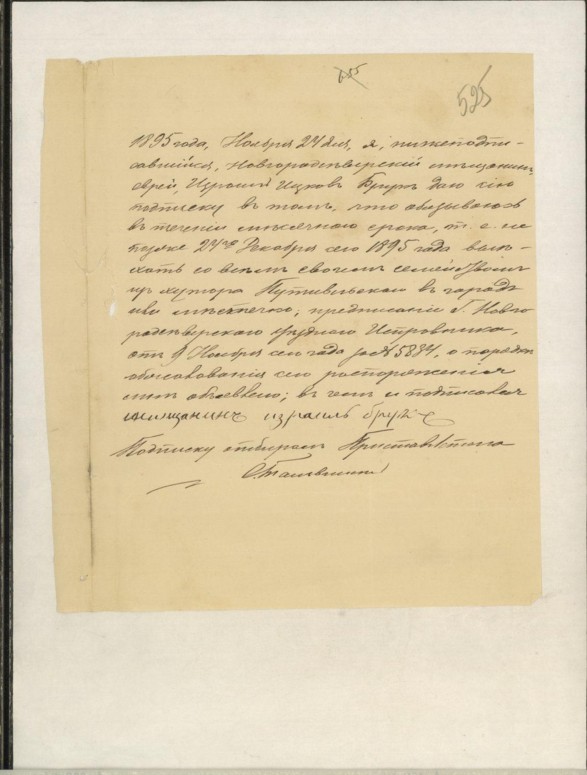 655
525
1895 года, Ноября 24 дня, я, нижеподпи-
савшійся, Новгородсѣверскій мѣщанинъ,
еврей, Израиль Ицковъ Брукъ даю сію
подписку въ томъ, что обязываюсь
въ теченіи мѣсячнаго срока, т. е. не
позже 24го Декабря сего 1895 года выѣ-
хать со всѣмъ своимъ семействомъ
изъ хутора Путивльскаго въ городъ
или мѣстечко; предписаніе Г. Новго
родсѣверскаго Уѣзднаго Исправника,
отъ 9 Ноября сего года за № 5884, о порядкѣ
обжалованія сего распоряженія
мнѣ объявлено; въ чемъ и подписался
мещанинъ израиль брукъ
Подписку отбиралъ Приставъ 1 стана